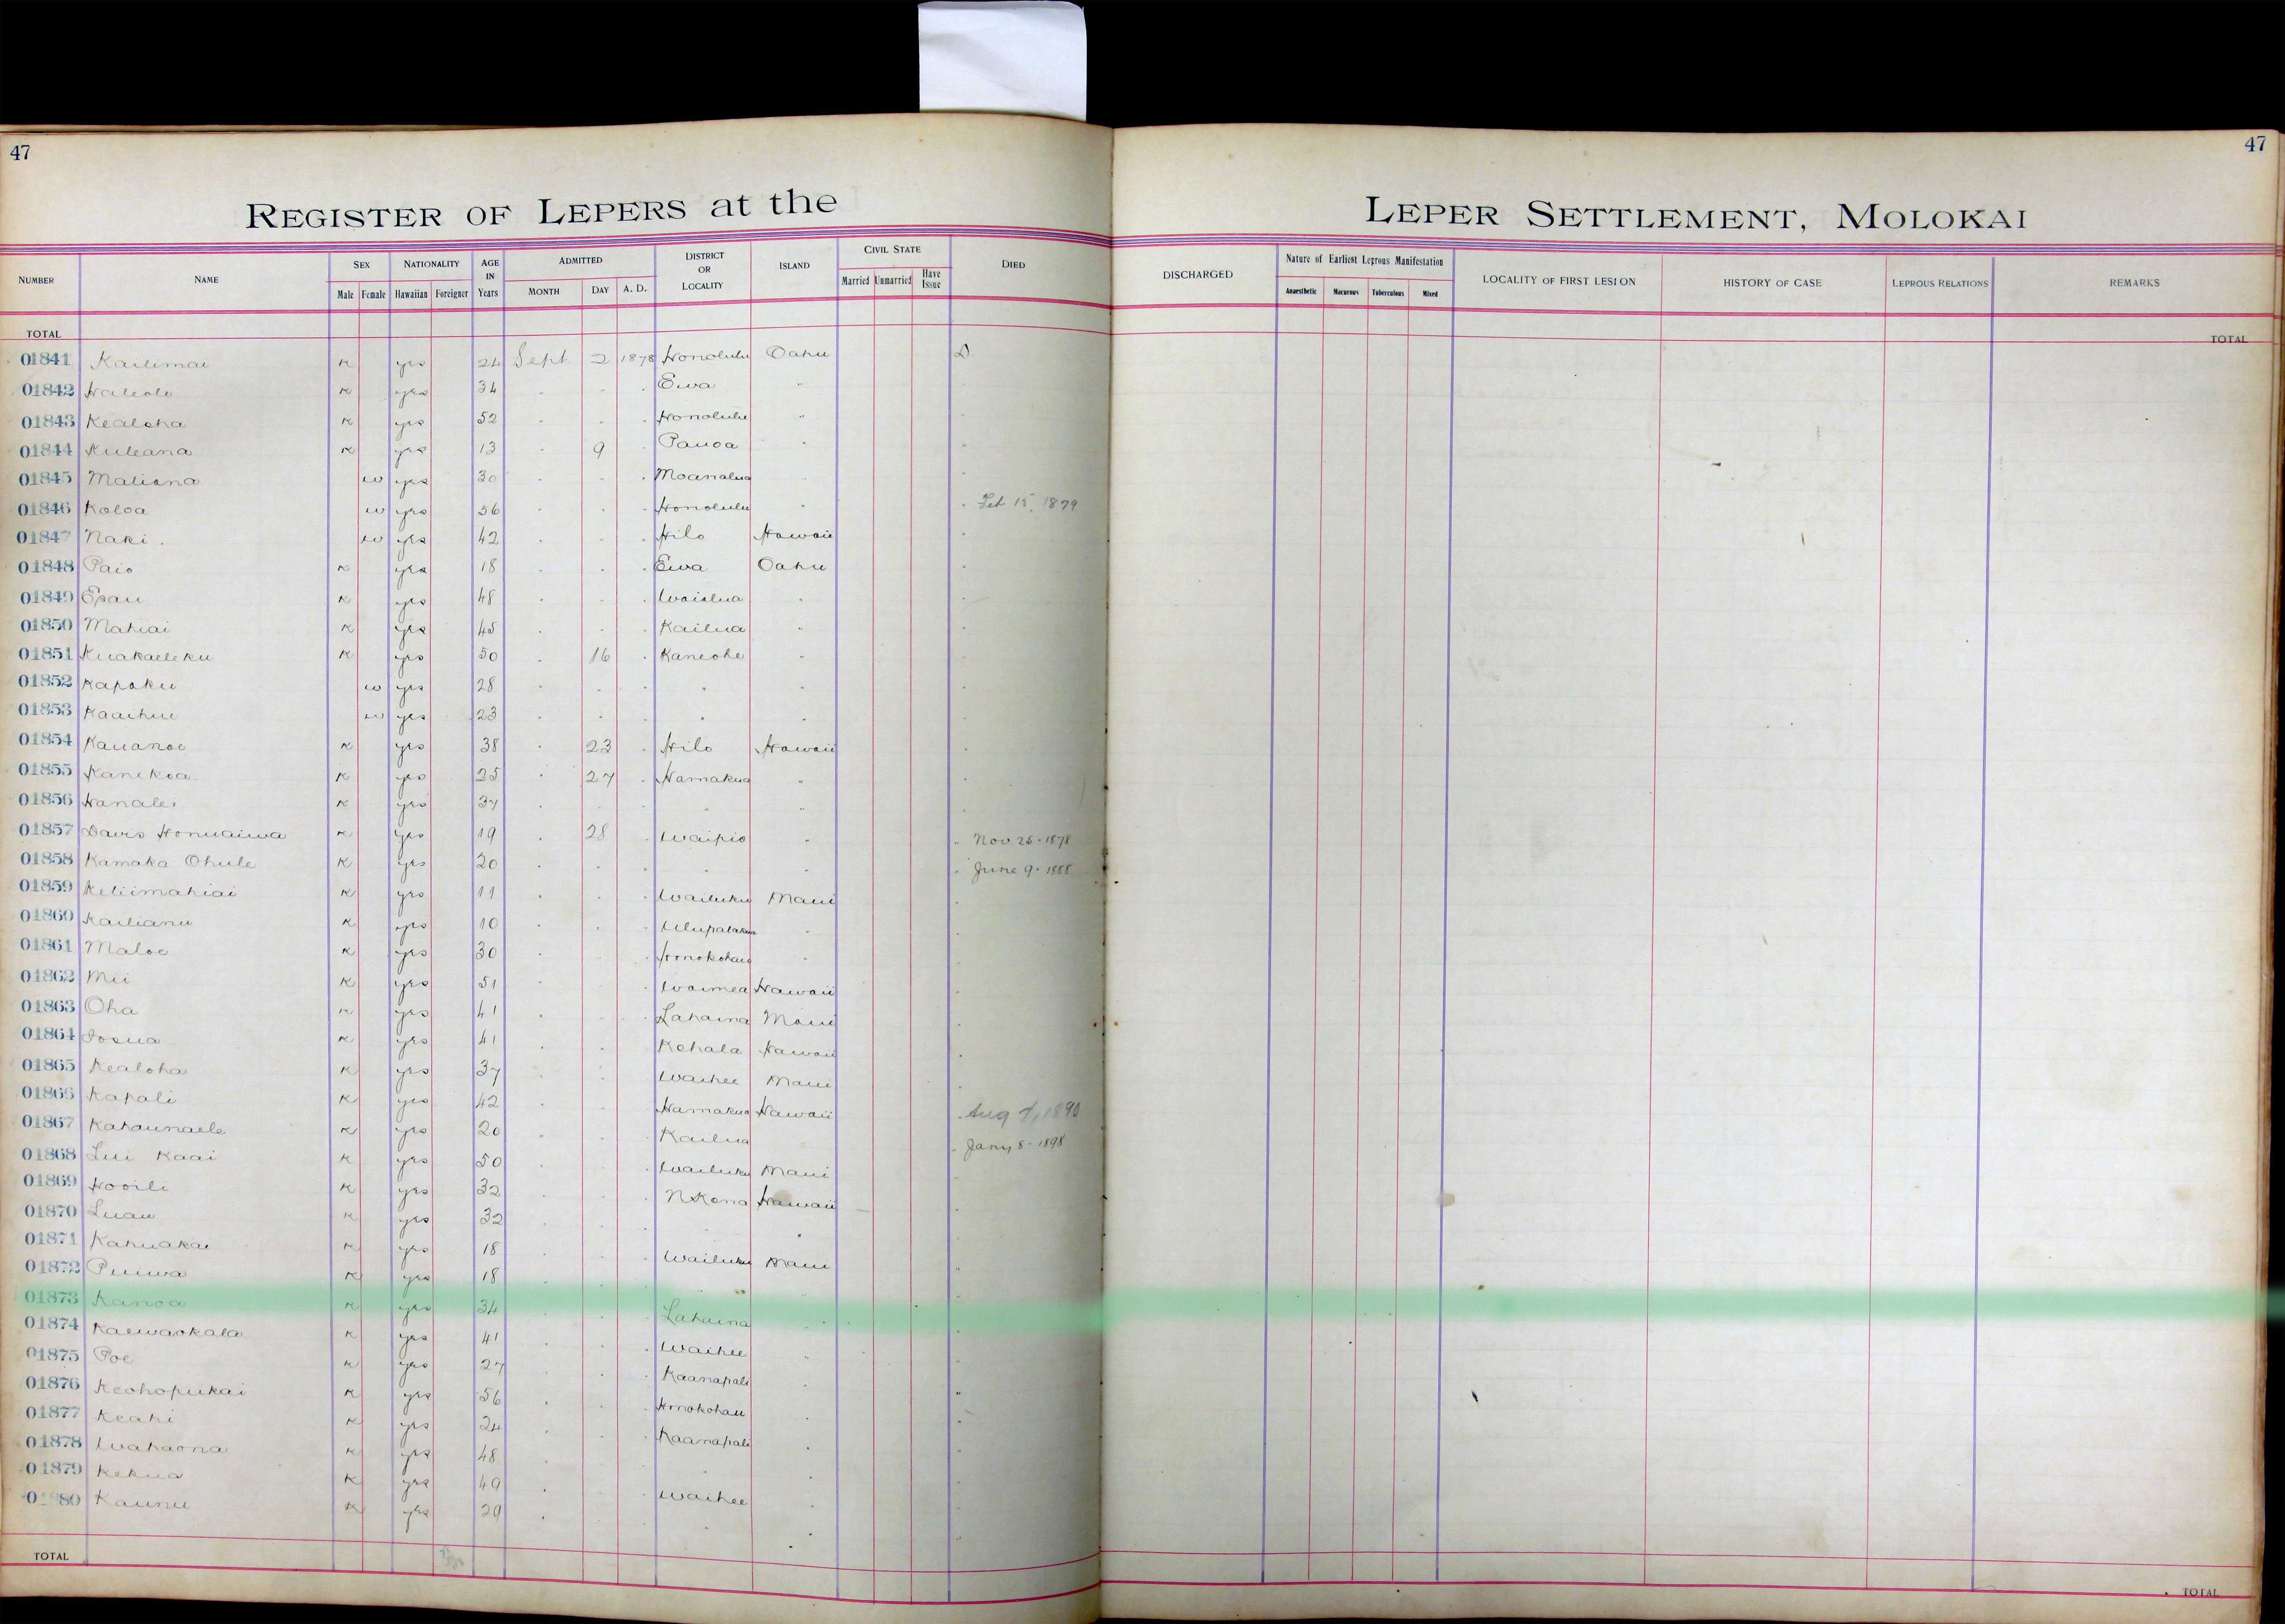 47
47
REGISTER OF LEPERS at the LEPER SETTLEMENT, MOLOKAI
NUMBER NAME SEX NATIONALITY AGE IN Years ADMITTED DISTRICT OR LOCALITY ISLAND CIVIL STATE DIED DISCHARGED Nature of Earliest Leprous Manifestation LOCALITY OF FIRST LESION HISTORY OF CASE LEPROUS RELATIONS REMARKS
Male Female Hawaiian Foreigner MONTH DAY A. D. Married Unmarried Have Issue Anaesthetic Macurous Tuberculous Mixed
TOTAL TOTAL
01841 Kailimai K yes 24 Sept 2 1878 Honolulu Oahu D
01842 Haleole K yes 34 " " " Ewa "
01843 Kealoha K yes 52 " " " Honolulu "
01844 Kuleana K yes 13 " 9 " Pauoa "
01845 Maliana w yes 30 " " " Moanalua "
01846 Koloa w yes 56 " " " Honolulu " " Feb 15, 1879
01847 Naki w yes 42 " " " Hilo Hawaii "
01848 Paio K yes 18 " " " Ewa Oahu "
01849 Epau K yes 48 " " " Waialua " "
01850 Mahiai K yes 45 " " " Kailua " "
01851 Kuakaeleku K yes 50 " 16 " Kaneohe " "
01852 Kapoku w yes 28 " " " " "
01853 Kaaihue w yes 23 " " " " "
01854 Kauanoe K yes 38 " 23 " Hilo Hawaii "
01855 Kanekoa K yes 25 " 27 " Hamakua " "
01856 Hanalei K yes 37 " " " " " "
01857 Davis Honuaiwa K yes 19 " 28 " Waipio " " Nov 25 - 1878
01858 Kamaka Ohule K yes 20 " " " " " " June 9 - 1888
01859 Keliimahiai K yes 11 " " " Wailuku Maui "
01860 Kailianu K yes 10 " " " Ulupalakua " "
01861 Maloe K yes 30 " " " Honokohau " "
01862 Mii K yes 51 " " " Waimea Hawaii "
01863 Oha K yes 41 " " " Lahaina Maui "
01864 Iosua K yes 41 " " " Kohala Hawaii "
01865 Kealoha K yes 37 " " " Waihee Maui "
01866 Kapali K yes 42 " " " Hamakua Hawaii " Aug 7, 1890
01867 Kahaunaele K yes 20 " " " Kailua " Jany 8 - 1898
01868 Lui Kaai K yes 50 " " " Wailuku Maui "
01869 Hooili K yes 32 " " " N Kona Hawaii "
01870 Luau K yes 32 " " " " " "
01871 Kahuakai K yes 18 " " " Wailuku Maui "
01872 Puiwa K yes 18 " " " " " "
01873 Kanoa K yes 34 " " " Lahaina " "
01874 Kaewaokala K yes 41 " " " Waihee " "
01875 Poe K yes 27 " " " Kaanapali " "
01876 Keohopukai K yes 56 " " " Honokohau " "
01877 Keahi K yes 24 " " " Kaanapali " "
01878 Wahaona K yes 48 " " " " " "
01879 Kekua K yes 49 " " " Waihee " "
0 880 Kaunu K yes 29 " " " " " "
TOTAL TOTAL